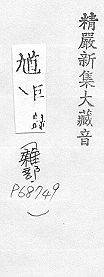 精嚴新集大藏音
(雜部
P68749
)